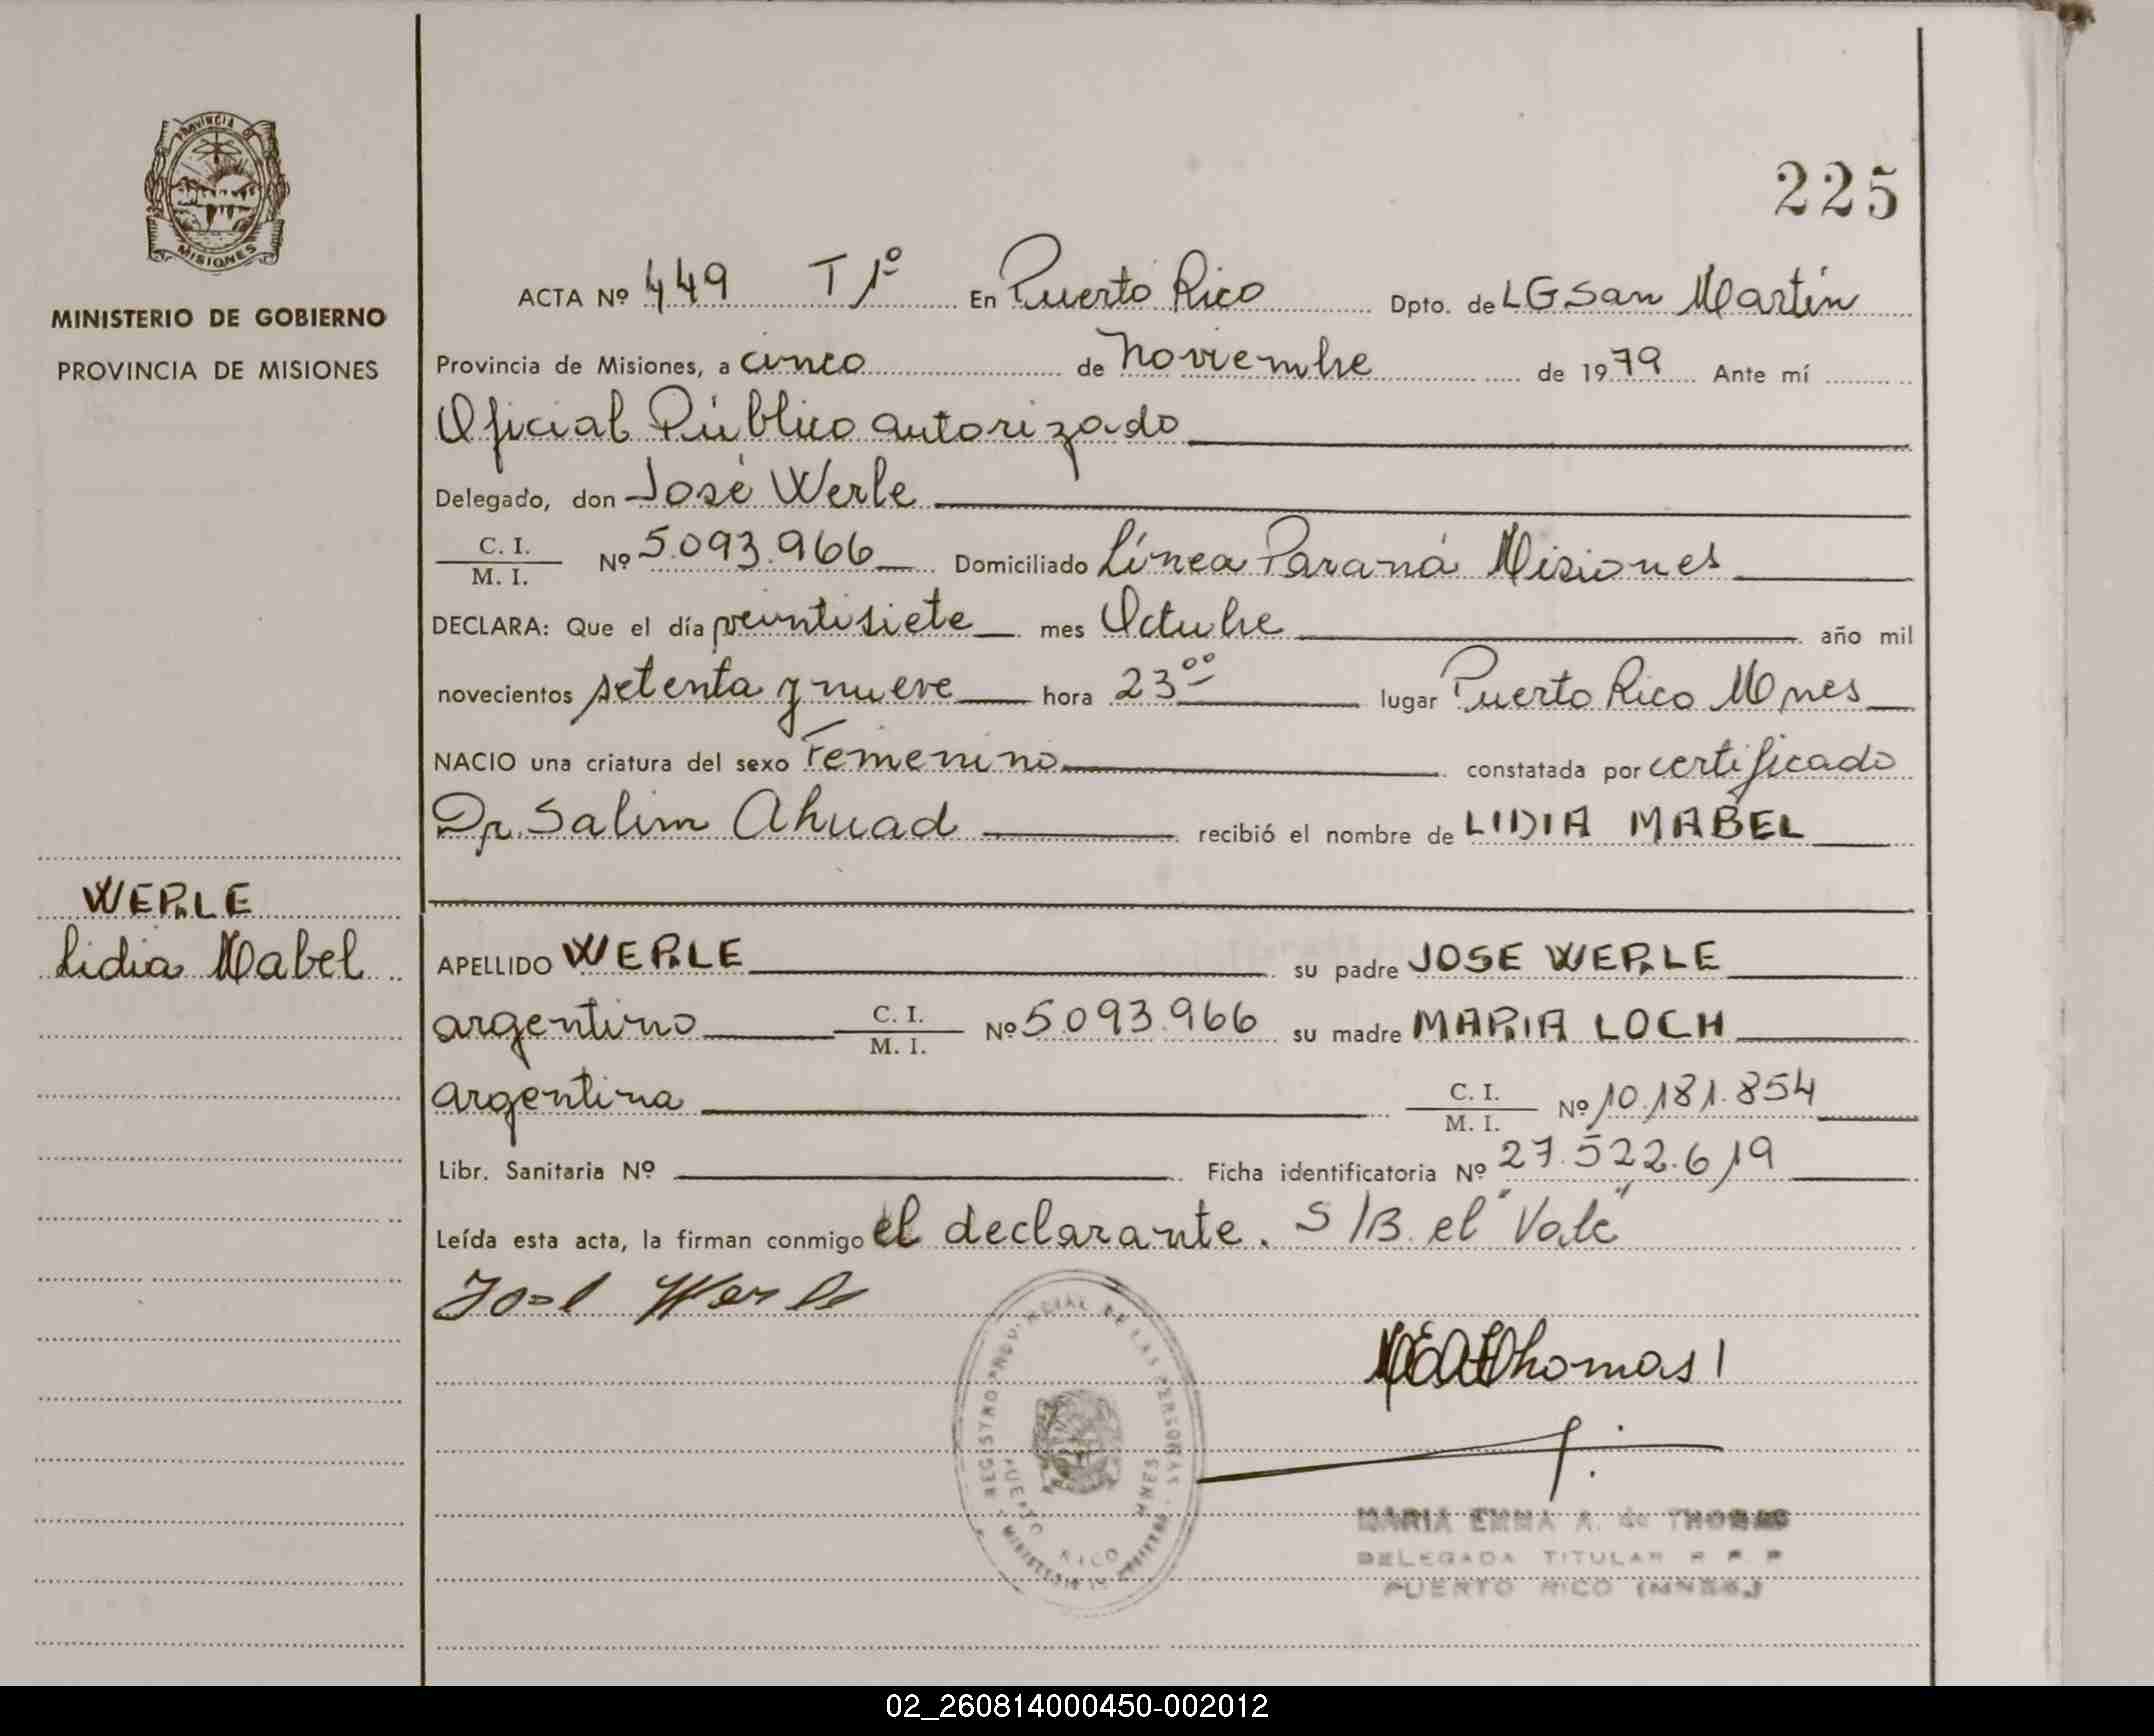 225
PROVINCIA DE
MISIONES
MINISTERIO DE GOBIERNO
PROVINCIA DE MISIONES
ACTA Nº 449 T 1º En Puerto Rico Dpto. de LG San Martín
Provincia de Misiones, a cinco de Noviembre de 1979 Ante mí
Oficial Público autorizado
Delegado, don José Werle
C. I. / M. I. Nº 5.093.966 Domiciliado Línea Paraná Misiones
DECLARA: Que el día veintisiete mes Octubre año mil
novecientos setenta y nueve hora 23⁰⁰ lugar Puerto Rico Mnes
NACIO una criatura del sexo Femenino constatada por certificado
Dr. Salim Ahuad recibió el nombre de LIDIA MABEL
WERLE
Lidia Mabel
APELLIDO WERLE su padre JOSE WERLE
argentino C. I. / M. I. Nº 5.093.966 su madre MARIA LOCH
argentina C. I. / M. I. Nº 10.181.854
Libr. Sanitaria Nº Ficha identificatoria Nº 27.522.619
Leída esta acta, la firman conmigo el declarante. S/B. el "Vale"
José Werle
Thomas
REGISTRO PROVINCIAL DE LAS PERSONAS
PUERTO RICO MNES
MARIA EMMA A. de THOMAS
DELEGADA TITULAR R P P
PUERTO RICO (MNES.)
02_260814000450-002012